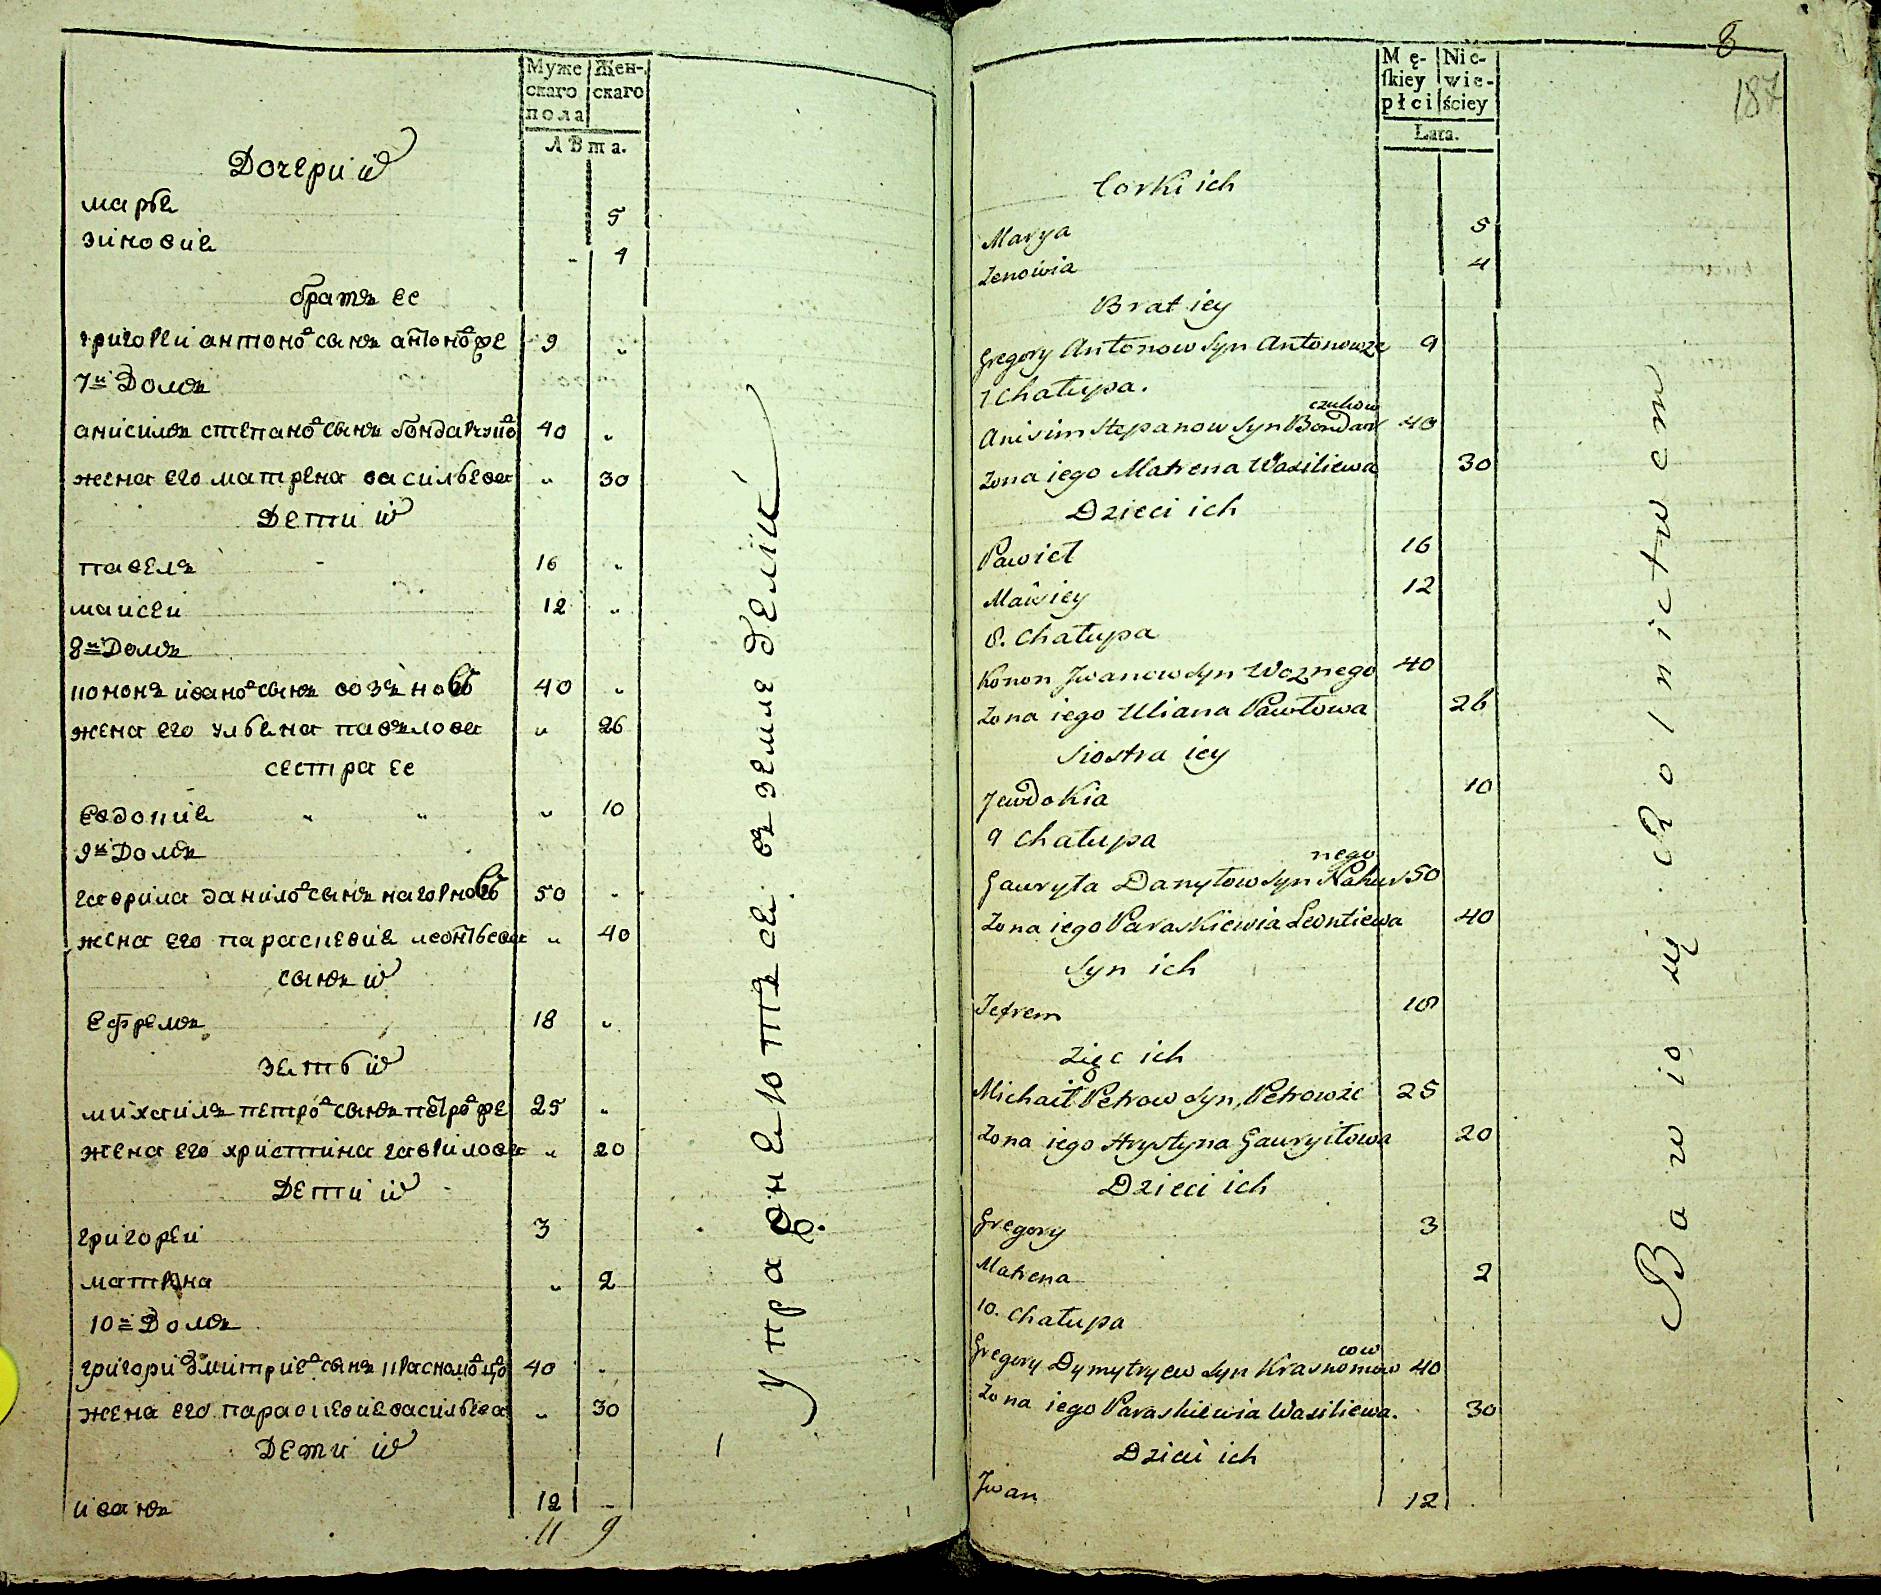 Муже Жен-
скаго скаго
пола
лѣта.
Дочери иѯ
марья 5
зіновия 4
братъ ее
григореи антоноⷡ сынъ антоноⷡже 9 "
7й Домъ
анисимъ степаноⷡ сынъ бондарчукоⷡ 40 "
жена его матрена васильева " 30
Дети иⷯ
павелъ 16 "
маисеи 12 "
8й Домъ
кононъ иваноⷡ сынъ возъново 40 "
жена его ульяна павълова " 26
сестра ее
евдокия " " " 10
9й Домъ
гаврила данилоⷡ сынъ нагорново 50 "
жена его параскевия леонтьева " 40
сынъ иⷯ
ефремъ 18 "
зять иⷯ
михаилъ петроⷡ сынъ петроⷡже 25 "
жена его христина гаврилова " 20
Дети иⷯ
григореи 3
матрона " 2
10й Домъ
григори дмитриеⷡ сынъ красномоⷡцоⷡ 40 "
жена его параскевия васильева " 30
Дети иⷯ
иванъ 12 "
11 9
упражняютъся въ земледелии
8
187
Mę- Nie-
ſkiey wie-
płci ściey
Lata.
Corki ich
Marya 5
Zenowia 4
Brat iey
Gregory Antonow Syn Antonowże 9
7 Chałupa.
czukow
Anisim Stepanow Syn Bondar 40
Zona iego Matrena Wasiliewa 30
Dzieci ich
Pawieł 16
Maisiey 12
8. Chałupa
Konon Jwanow Syn Woznego 40
Zona iego Uliana Pawłowa 26
Siostra iey
Jewdokia 10
9 Chałupa
nego
Gauryła Danyłow Syn Nahur 50
Zona iego Paraskiewia Leontiewa 40
Syn ich
Jefrem 18
Zięc ich
Michaił Petrow Syn Petrowże 25
Zona iego Hrystyna Gauryiłowa 20
Dzieci ich
Gregory 3
Matrena 2
10. Chałupa
cow
Gregory Dymytryew Syn Krasnomow 40
Zona iego Paraskiewia Wasiliewa. 30
Dzieci ich
Jwan 12
Bawio się Rolnictwem